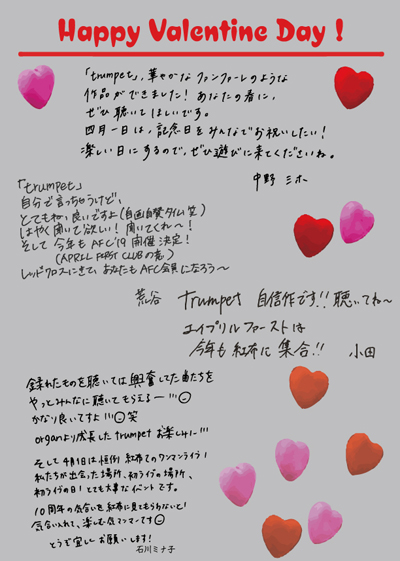 Happy Valentine Day !
「trumpet」、華やかなファンファーレのような
作品ができました！あなたの春に、
ぜひ聴いてほしいです。
四月一日は、記念日をみんなでお祝いしたい！
楽しい日にするので、ぜひ遊びに来てくださいね。
中野ミホ
「trumpet」
自分で言っちゃうけど、
とてもね、良いですよ(自画自賛タイム笑)
はやく聞いて欲しい！聞いてくれ〜！
そして 今年も AFC'19 開催決定！
(APRIL FIRST CLUBの意)
レッドクロスにきて、あなたもAFC会員になろう〜
荒谷
trumpet 自信作です!! 聴いてね〜
エイプリルファーストは
今年も紅布に集合!! 小田
録れたものを聴いては興奮してた曲たちを
やっとみんなに聴いてもらえるー!!!
かなり良いですよ!!! 笑
organより成長したtrumpetお楽しみに!!!
そして4月1日は恒例 紅布でのワンマンライブ！
私たちが出会った場所、初ライブの場所、
初ライブの日！とても大事なイベントです。
10周年の気合いを紅布に見てもらわないと！
気合い入れて、楽しむ気マンマンです
どうぞ宜しくお願いします！
石川ミナ子